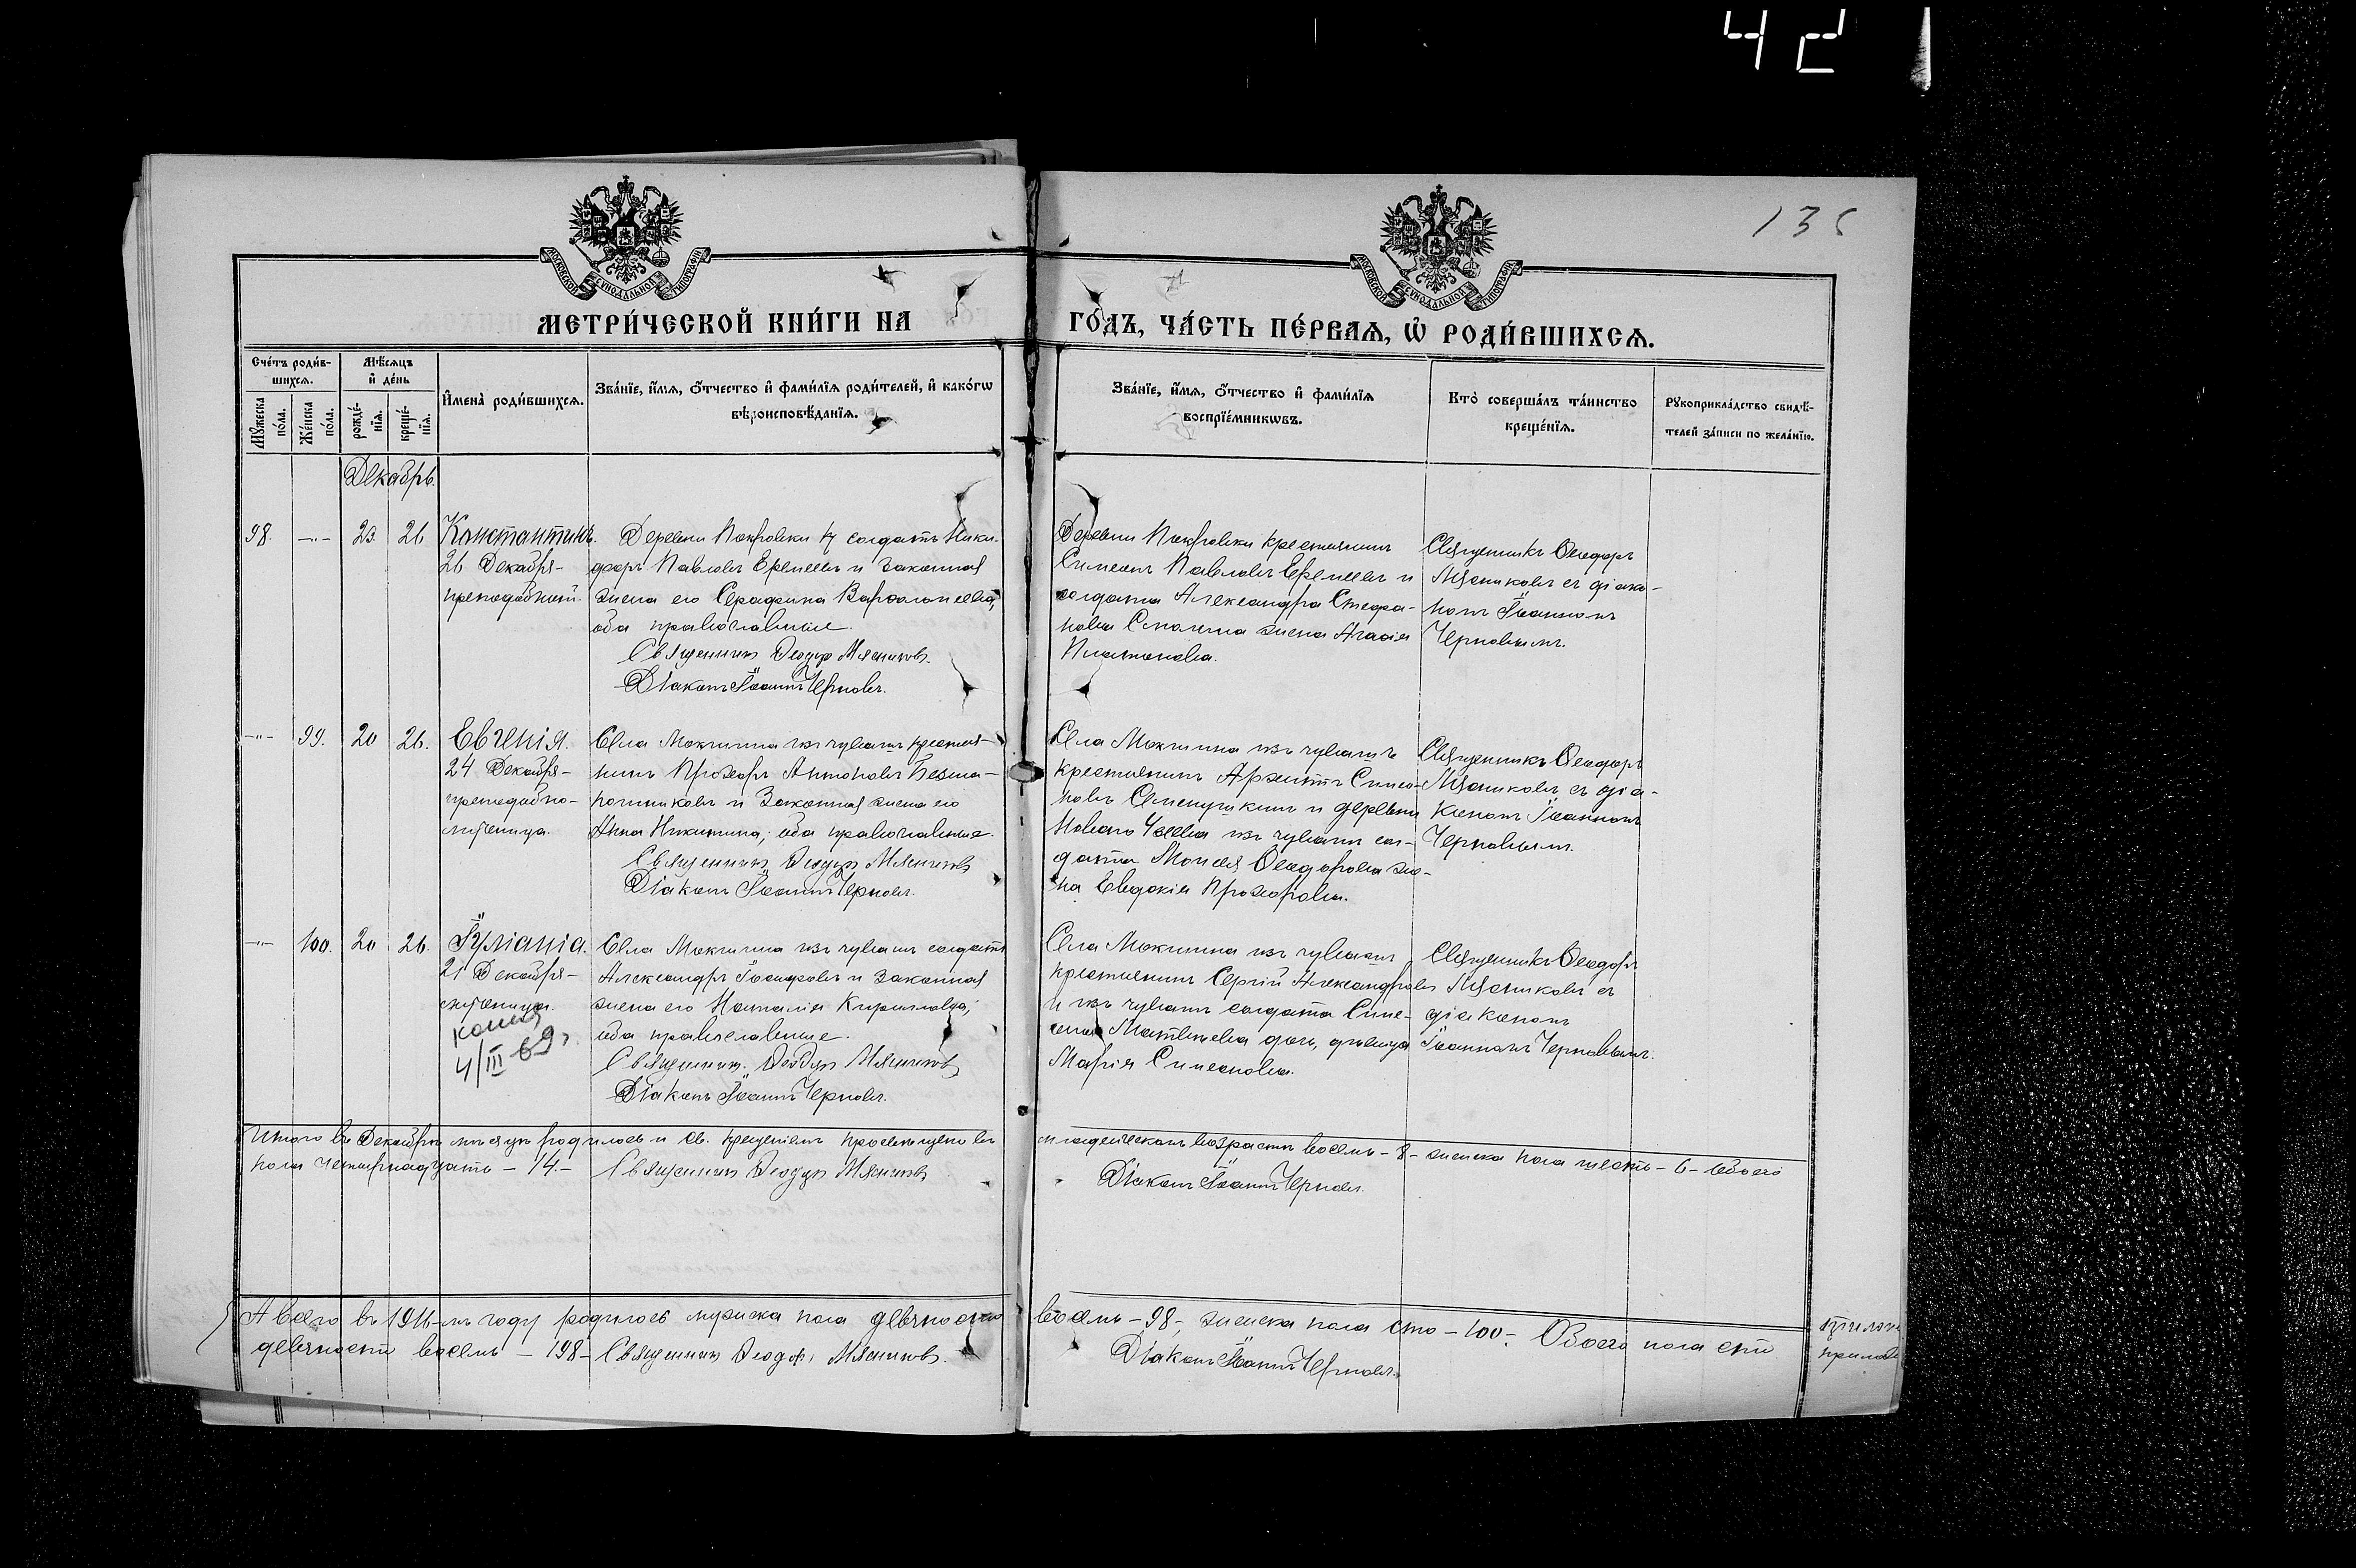 42
135
МОСКОВСКОЙ СѴНОДАЛЬНОЙ ТИПОГРАФІИ
МОСКОВСКОЙ СѴНОДАЛЬНОЙ ТИПОГРАФІИ
МЕТРИ́ЧЕСКОЙ КНИ́ГИ НА
ГО́ДЪ, ЧА́СТЬ ПЕ́РВАѦ, Ѡ҆ РОДИ́ВШИХСѦ.
Сче́тъ роди́в-
шихсѧ.
Мꙋ́жеска
по́ла.
Же́нска
по́ла.
Мѣ́сѧцъ
и҆ де́нь
рожде́-
нїѧ.
креще́-
нїѧ.
И҆мена̀ роди́вшихсѧ.
Зва́нїе, и҆́мѧ, ѻ҆́тчество и҆ фами́лїѧ роди́телей, и҆ како́гѡ
вѣроисповѣ́данїѧ.
Зва́нїе, и҆́мѧ, ѻ҆́тчество и҆ фами́лїѧ
воспрїе́мникѡвъ.
Кто̀ соверша́лъ та́инство
креще́нїѧ.
Рꙋкоприкла́дство свидѣ́-
телей за́писи по жела́нїю.
Декабрь.
98. —"— 23 26 Константинъ.
26 Декабря-
преподобный.
Деревни Покровки солдатъ Ники-
форъ Павловъ Еремеевъ и законная
жена его Серафима Варѳоломеева,
оба православные.
Священникъ Ѳеодоръ Мясниковъ.
Діаконъ Іоаннъ Черновъ.
Деревни Покровки крестьянинъ
Симеонъ Павловъ Еремеевъ и
солдата Александра Стефа-
нова жена Агафія
Платонова.
Священникъ Ѳеодоръ
Мясниковъ съ діако-
номъ Іоанномъ
Черновымъ.
—"— 99. 20 26. Евгенія.
24 Декабря-
преподобно-
мученица.
Села Мокшина изъ чувашъ крестья-
нинъ Прохоръ Антоновъ
и законная жена его
Анна Никитина, оба православные.
Священникъ Ѳеодоръ Мясниковъ
Діаконъ Іоаннъ Черновъ.
Села Мокшина изъ чувашъ
крестьянинъ Симео-
новъ и деревни
Новаго изъ чувашъ сол-
дата Моисея Ѳеодорова же-
на Евдокія Прохорова.
Священникъ Ѳеодоръ
Мясниковъ съ діа-
кономъ Іоанномъ
Черновымъ.
—"— 100. 20 26. Іуліанія.
21 Декабря-
мученица.
копия
4/III 69 г.
Села Мокшина изъ чувашъ солдатъ
Александръ Іосифовъ и законная
жена его Наталія Кириллова,
оба православные.
Священникъ Ѳеодоръ Мясниковъ
Діаконъ Іоаннъ Черновъ.
Села Мокшина изъ чувашъ
крестьянинъ Сергій Александровъ
и изъ чувашъ солдата Симе-
она Матвѣева дочь, дѣвица
Марія Симеонова.
Священникъ Ѳеодоръ
Мясниковъ съ
діакономъ
Іоанномъ Черновымъ.
Итого въ Декабрѣ мѣсяцѣ родилось и св. крещеніемъ просвѣщено въ младенческомъ возрастѣ восемь - 8 - женска пола шесть - 6 - Обоего
пола четырнадцать - 14. - Священникъ Ѳеодоръ Мясниковъ Діаконъ Іоаннъ Черновъ.
А всего въ 1916-мъ году родилось мужска пола девяносто восемь - 98 -, женска пола сто - 100 -. Обоего пола сто
девяносто восемь - 198 - Священникъ Ѳеодоръ Мясниковъ. Діаконъ Іоаннъ Черновъ.